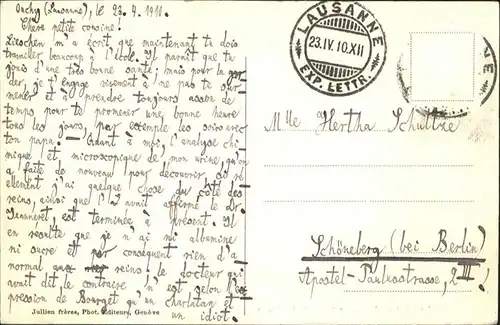 Ouchy (Lausanne), le 23.4.1910.
Chère petite cousine!
Lieschen m'a écrit que maintenant tu dois
travailler beaucoup à l'école. Il paraît que tu
jouis d'une très bonne santé; mais pour la gar-
der, je t'engage vivement à ne pas te sur-
mener et à prendre toujours assez de
temps pour te promener une bonne heure
tous les jours, par exemple les soirs avec
ton papa. – Quant à moi, l'analyse chi-
mique et microscopique de mon urine, qu'on
a faite de nouveau pour découvrir si ré-
ellement j'ai quelque chose du côté des
reins, ainsi que l'avait affirmé le Dr.
Jeanneret, est terminée à présent. Il
en résulte que je n'ai ni albumine
ni sucre et par conséquent rien d'a-
normal aux reins; le docteur qui
avait dit le contraire n'est selon l'ex-
pression de Bourget qu'un charlatan et
un idiot.
Jullien frères, Phot. Editeurs, Genève
LAUSANNE
23.IV.10.XII
EXP. LETTR.
NE
TR.
Mlle Hertha Schultze
Schöneberg (bei Berlin)
Apostel-Paulusstrasse, 2 III!